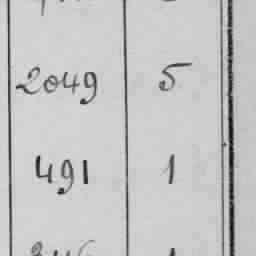 2049 5
491 1